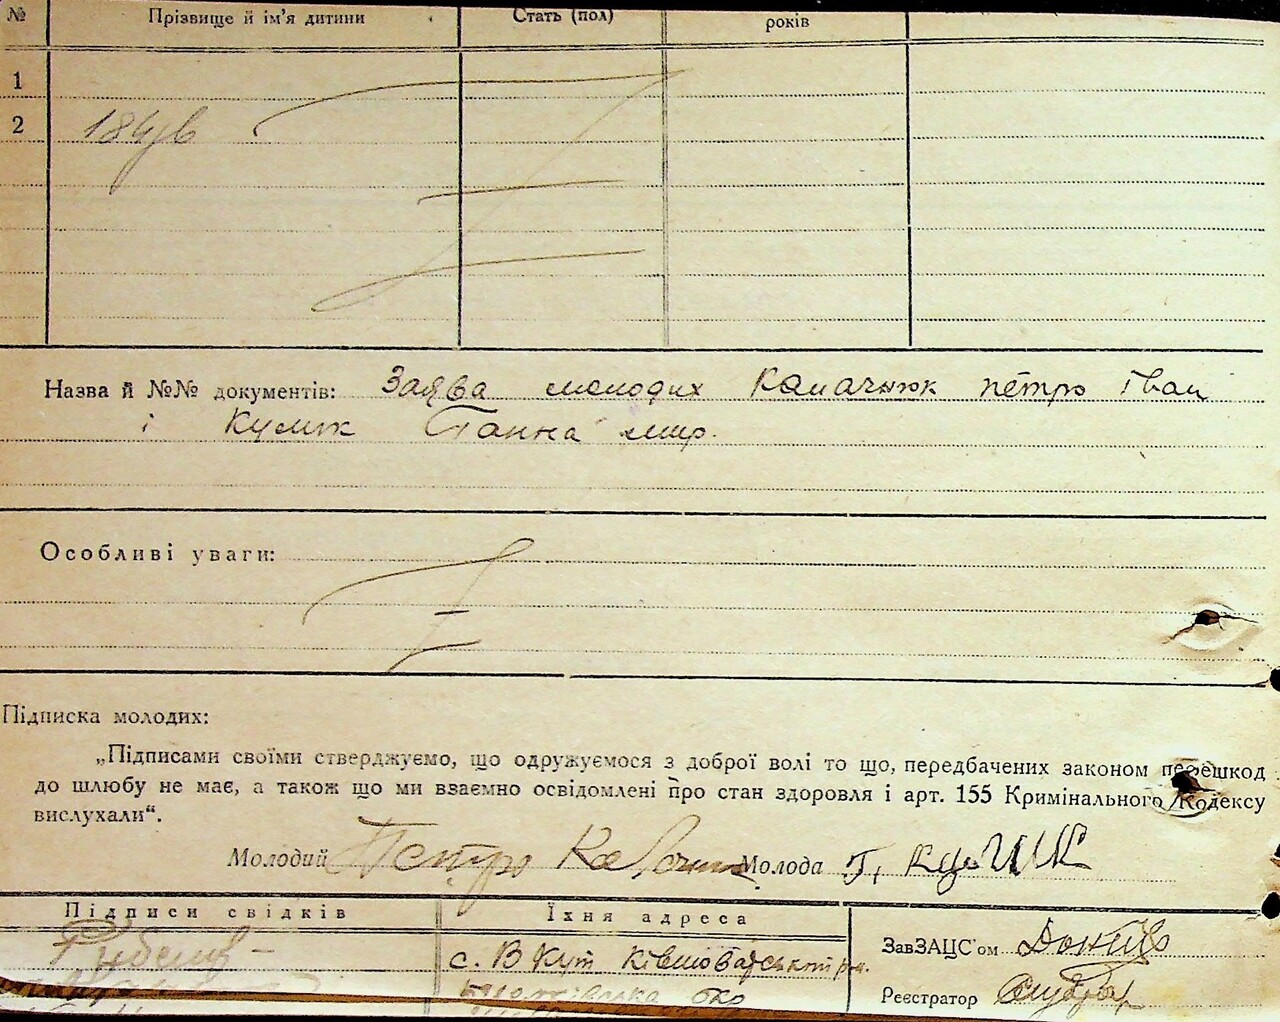 № Прізвище й ім'я дитини Стать (пол) років
1
2
Назва й №№ документів: Заява молодих Петро Іван
і Кулик Ганна мир.
Особливі уваги:
Підписка молодих:
„Підписами своїми стверджуємо, що одружуємося з доброї волі то що, передбачених законом перешкод
до шлюбу не має, а також що ми взаємно освідомлені про стан здоровля і арт. 155 Кримінального Кодексу
вислухали“.
Молодий Петро Молода Г. Кулик
Підписи свідків Їхня адреса
ЗавЗАЦС'ом
с. В Кут
Реєстратор